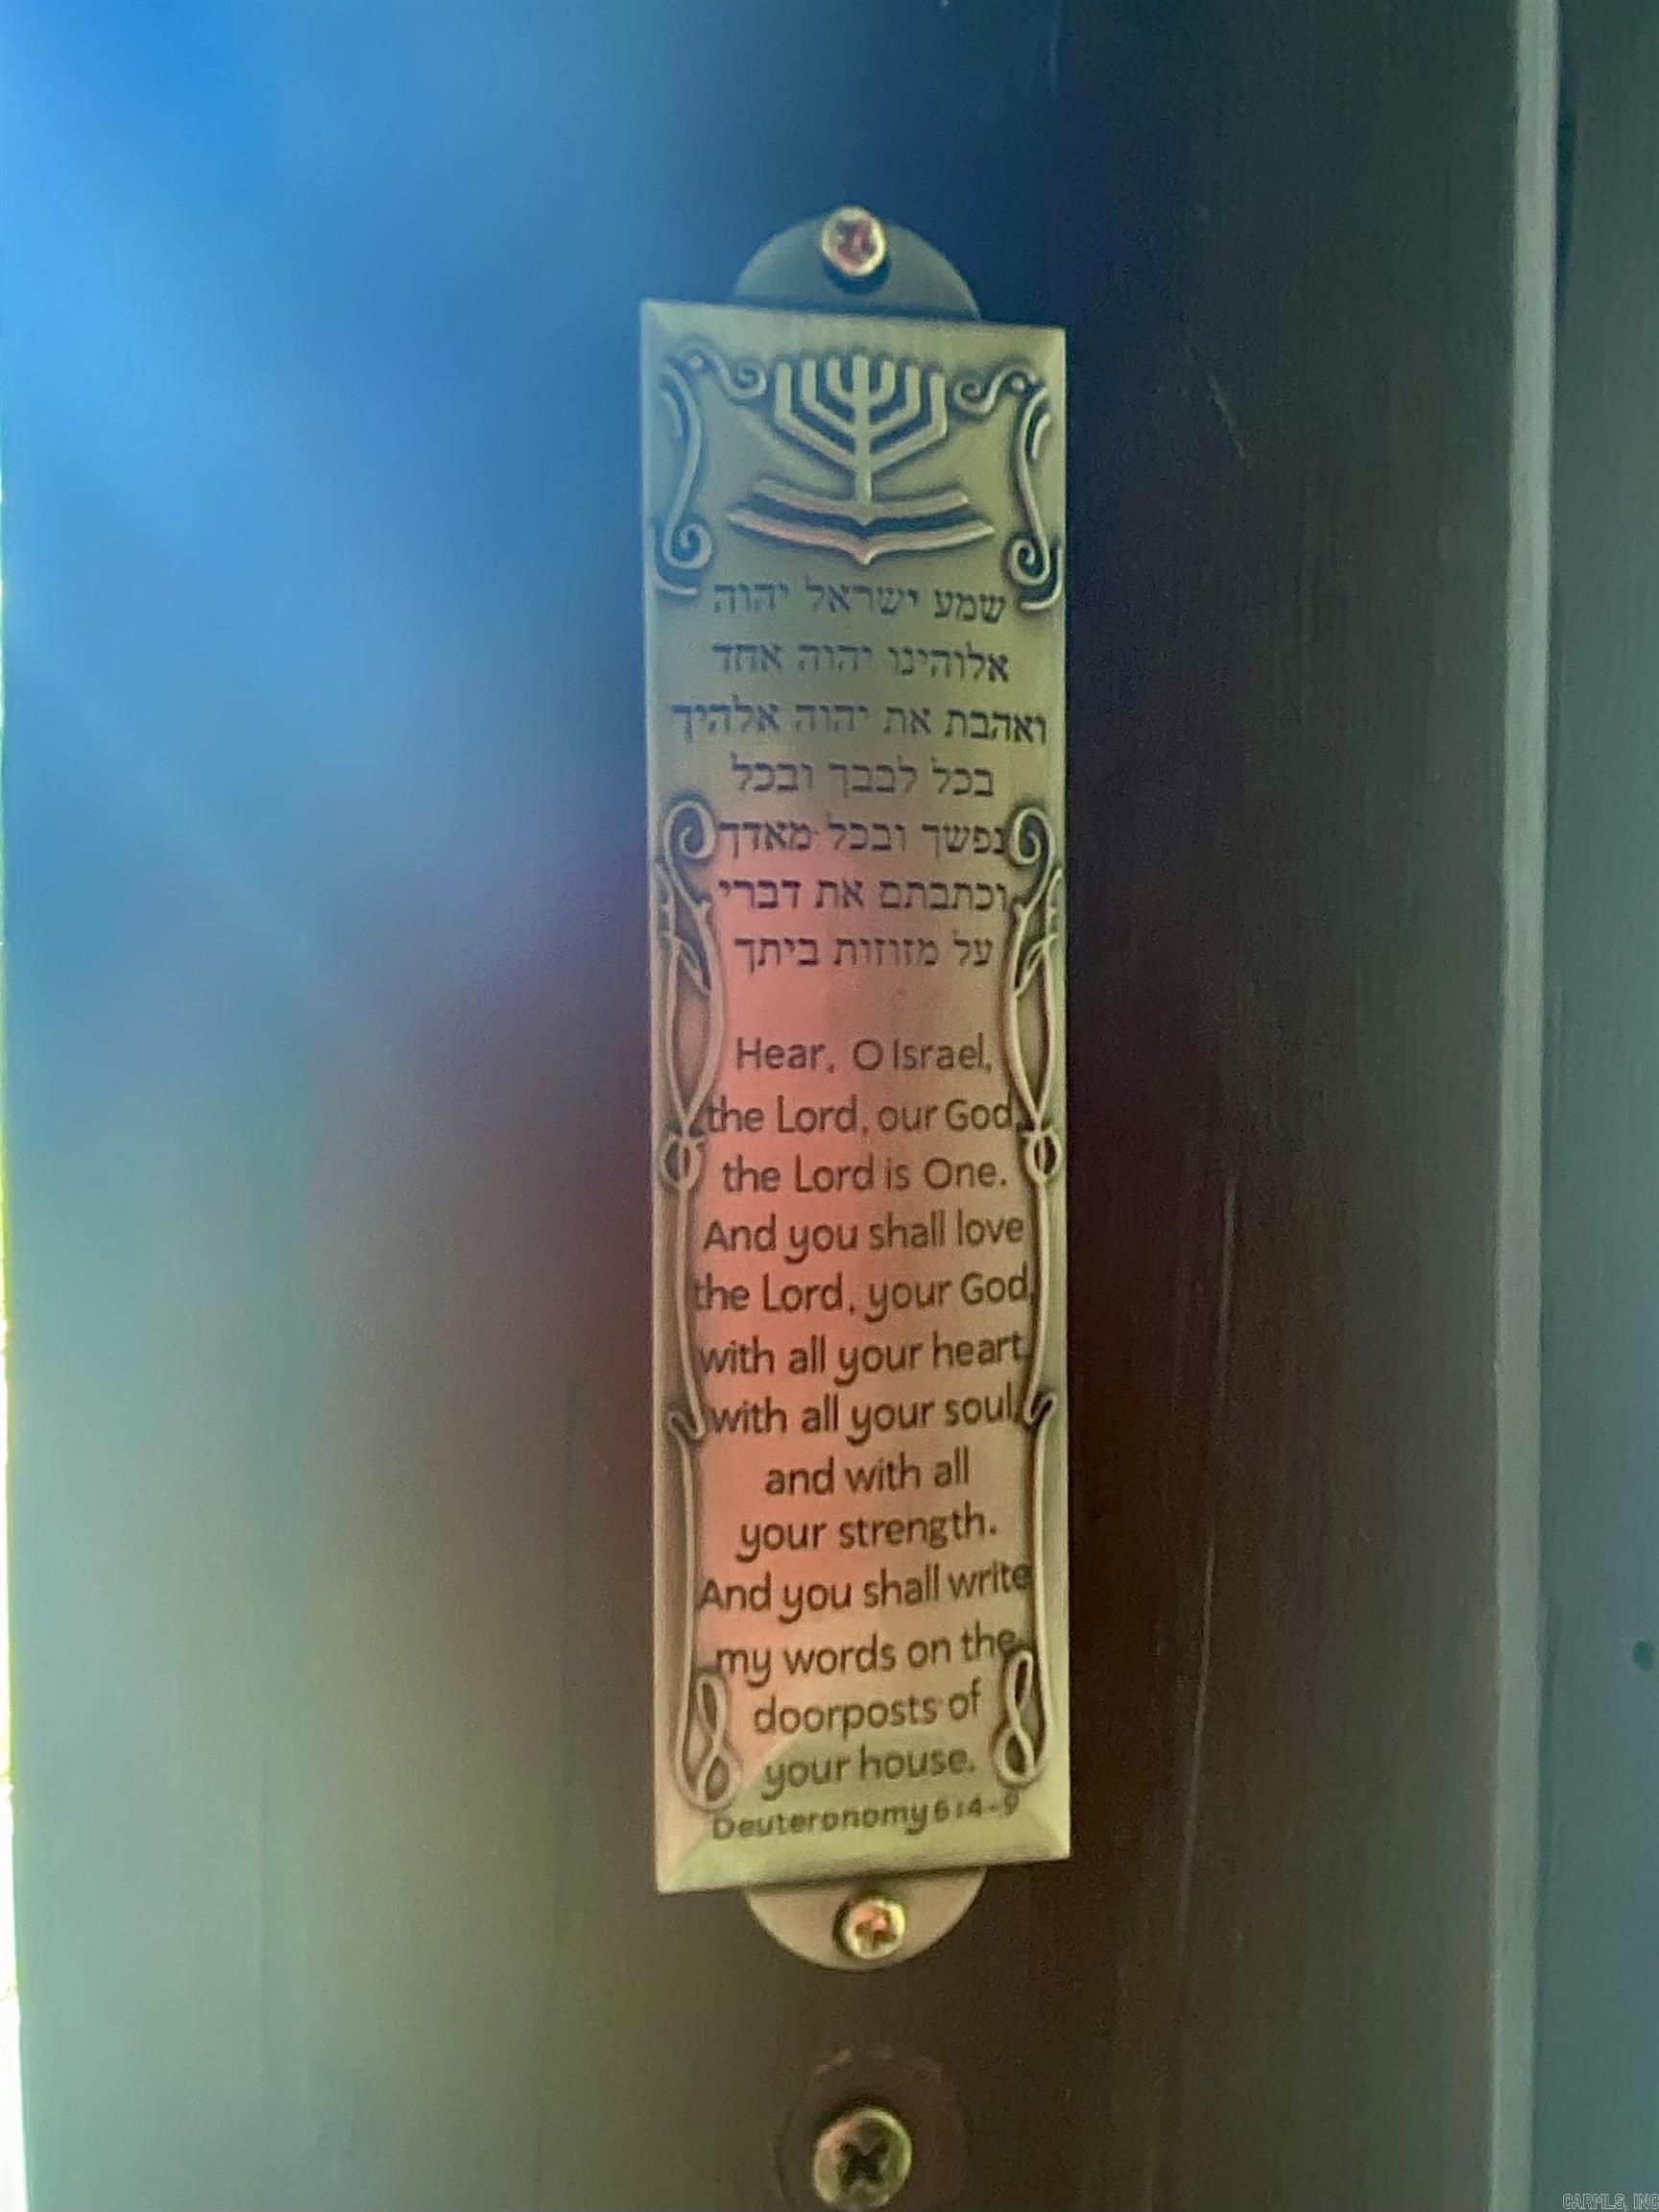 שמע ישראל יהוה
אלוהינו יהוה אחד
ואהבת את יהוה אלהיך
בכל לבבך ובכל
נפשך ובכל מאדך
וכתבתם את דברי
על מזוזות ביתך
Hear, O Israel,
the Lord, our God,
the Lord is One.
And you shall love
the Lord, your God,
with all your heart,
with all your soul,
and with all
your strength.
And you shall write
my words on the
doorposts of
your house.
Deuteronomy 6:4-9
CARMLS, INC